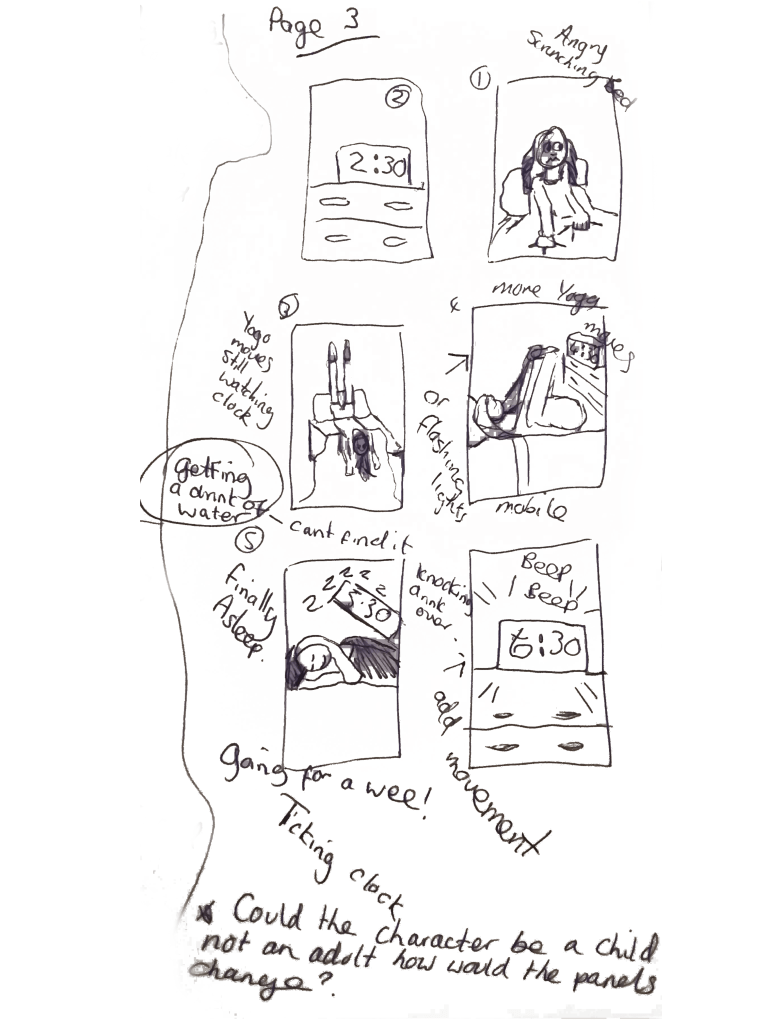 Page 3
Angry
Scrunching bed
①
②
2:30
more Yoga
moves
4
③
Yoga
moves
still
watching
clock
or flashing
lights
mobile
getting
a drink of
water
cant find it
⑤
finally
Asleep.
z z z z z
5:30
knocking
drink
over.
Beep!
Beep
6:30
add
movement
Going for a wee!
Ticking clock
* Could the character be a child
not an adult how would the panels
change?